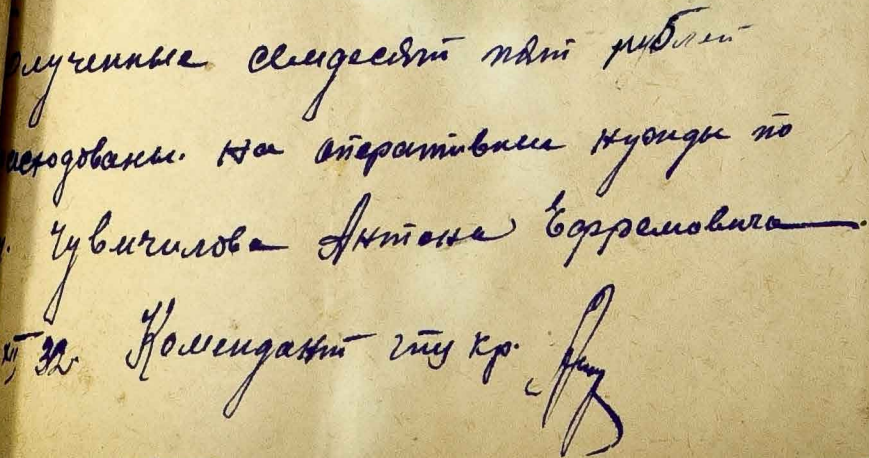 олученные семдесят пят рублей
асходованы. на оперативни нужды по
Чувичилова Антона Ефремовича
XII, 32. Комендант гпу кр.